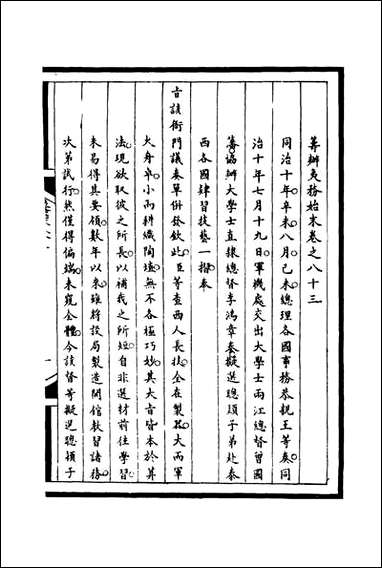 籌辦夷務始末卷之八十三
同治十年辛未八月己未總理各國事務恭親王等奏同
治十年七月十九日軍機處交出大學士兩江總督曾國
藩協辦大學士直隸總督李鴻章奏擬選聰穎子弟赴泰
西各國肄習技藝一摺奉
旨該衙門議奏單併發欽此臣等查西人長技全在製器大而軍
火舟車小而耕織陶埴無不各極巧妙其大旨皆本於算
法現欲取彼之所長以補我之所短自非選材前往學習
未易得其要領數年以來雖將設局製造開館教習諸務
次第試行然僅得偏端未窺全體今該督等擬選聰穎子